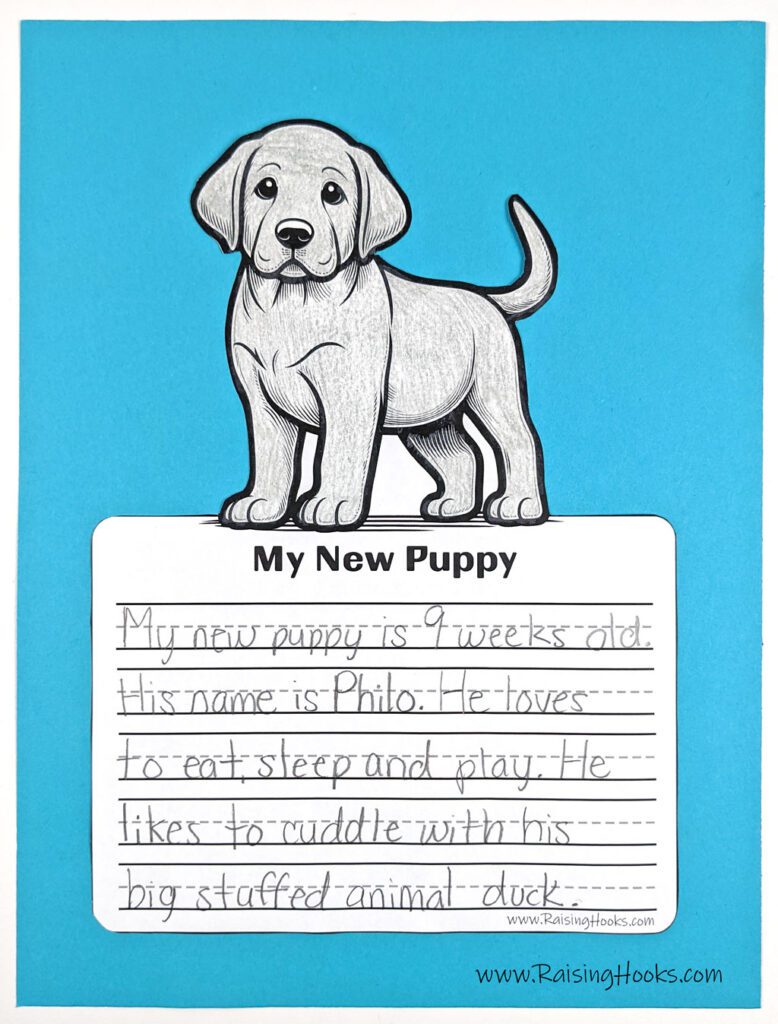 My New Puppy
My new puppy is 9 weeks old.
His name is Philo. He loves
to eat, sleep and play. He
likes to cuddle with his
big stuffed animal duck.
www.RaisingHooks.com
www.RaisingHooks.com